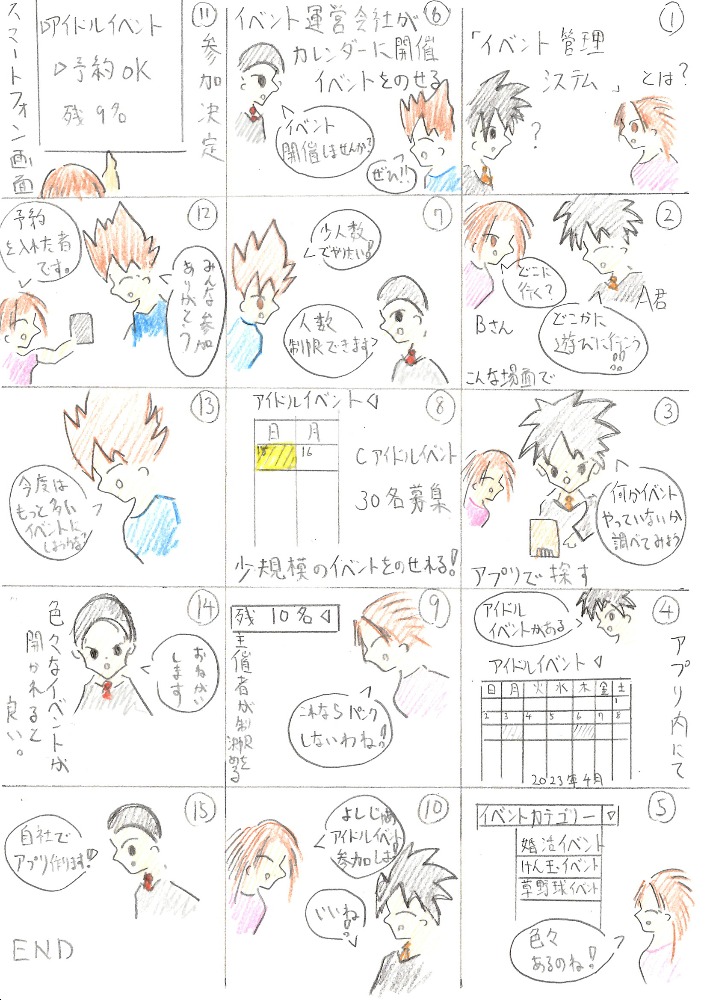 ①
「イベント管理
システム」とは?
?
②
どこに
行く?
A君
Bさん
どこかに
遊びに行こう
!!
こんな場面で
③
何かイベント
やっていないか
調べてみよう
アプリで探す
④
アイドル
イベントがある
アプリ内にて
アイドルイベント
日月火水木金土
1
2 3 4 5 6 7 8
2023年4月
⑤
イベントカテゴリー
婚活イベント
けん玉イベント
草野球イベント
色々
あるのね!
⑥
イベント運営会社が
カレンダーに開催
イベントをのせる
イベント
開催しませんか?
ぜひ!!
⑦
少人数
でやりたい!
人数
制限できます
⑧
アイドルイベント
日 月
15 16
Cアイドルイベント
30名募集
少規模のイベントをのせれる!
⑨
残10名
主催者が制限を決める
これならパンク
しないわね!
⑩
よしじゃあ
アイドルイベント
参加しよ!
いいね
!?
⑪
参加決定
アイドルイベント
予約OK
残9名
スマートフォン画面
⑫
予約
を入れた者
です。
みんな参加
ありがとう
⑬
今度は
もっと多い
イベントに
しようかな?
⑭
おねがい
します
色々なイベントが
開かれると
良い。
⑮
自社で
アプリ作ります!
END